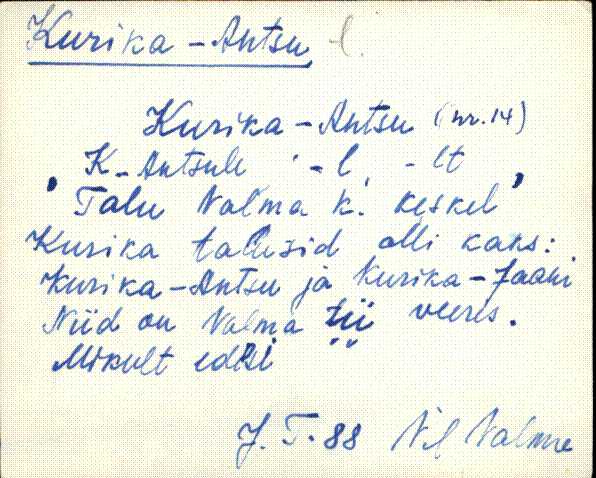 Kurika-Antsu t.
Kurika-Antsu (nr. 14)
K-Antsule -l, -lt,
Talu Nalma k. keskel
Kurika talusid olli kaks:
Kurika-Antsu ja Kurika-Jaani
Niid on Nalma tii veeres.
Mikult edesi
J. T. 88 Vil Nalma